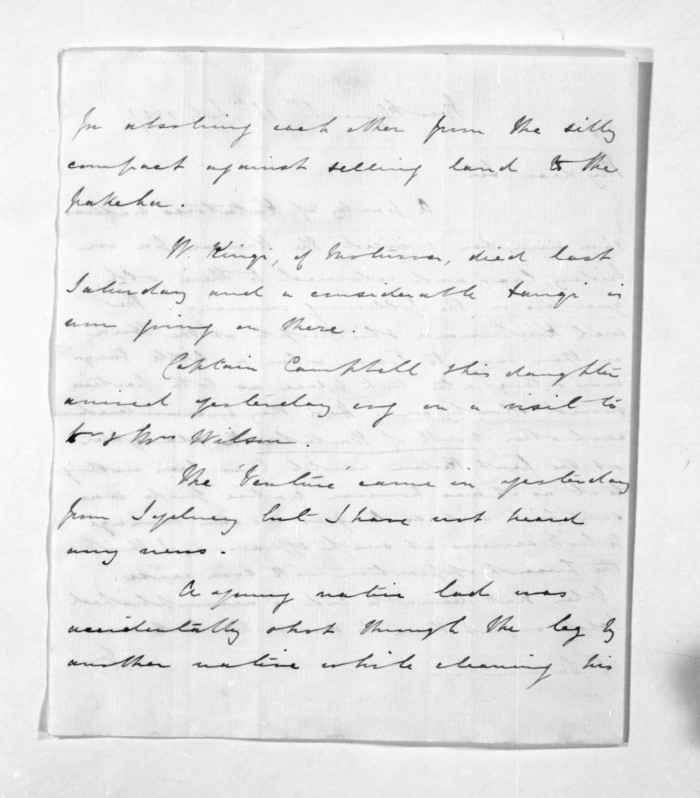 In absolving each other from the silly
compact against selling land to the
pakeha.
W. Kingi, of Motunui, died last
Saturday and a considerable tangi is
now going on there.
Captain Campbell & his daughter
arrived yesterday evg on a visit to
Dr & Mrs Wilson.
The 'Venture' came in yesterday
from Sydney but I have not heard
any news.
A young native lad was
accidentally shot through the leg by
another native while cleaning his